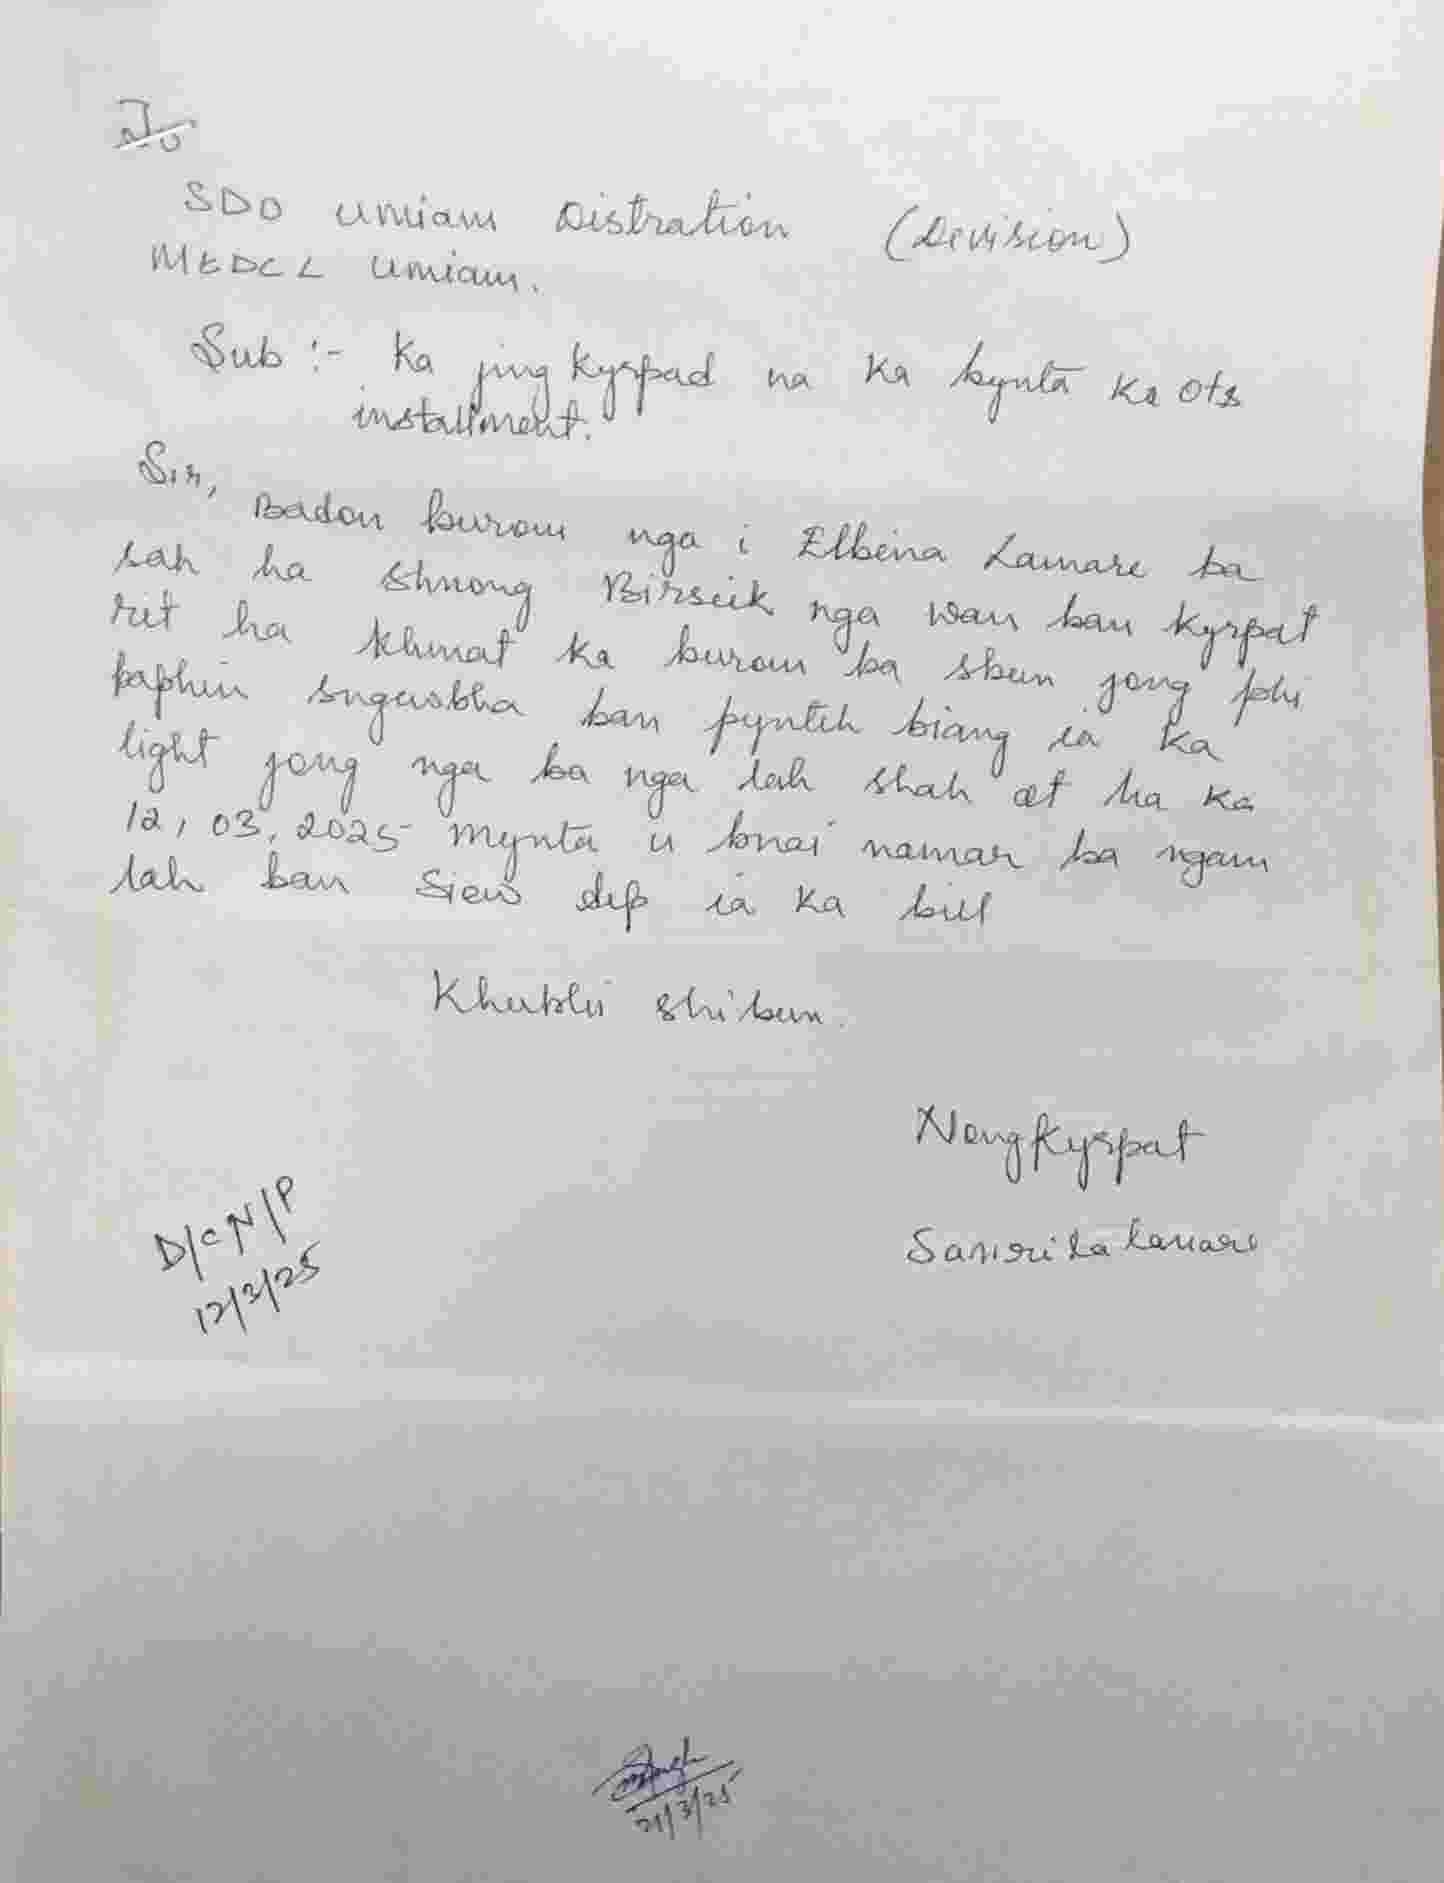 To
SDO Umiam Distration (Devision)
MEDCL Umiam.
Sub :- Ka jing kyrpad na ka bynta ka ots
installment.
Sir,
Badon burom nga i Elbena Lamare ba
sah ha shnong Birseik nga wan ban kyrpat
rit ha khmat ka burom ba skum jong phi
baphin sngewbha ban pynteh biang ia ka
light jong nga ba nga lah shah ot ha ka
12, 03, 2025 mynta u bnai namar ba ngam
lah ban siew dep ia ka bill
Khublei shibun.
Nongkyrpat
Lamare
D/C N/P
12/3/25
21/3/25